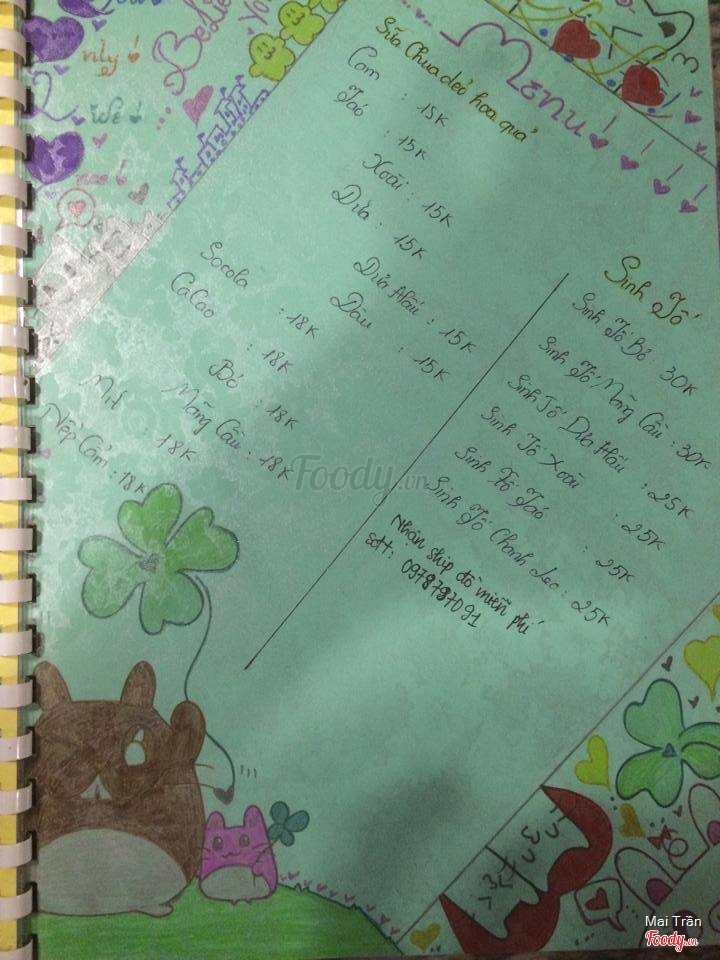 nly!
We!
Menu!
Sữa Chua dẻo hoa quả
Cam : 15K
Táo : 15K
Xoài : 15K
Dứa : 15K
Dưa Hấu : 15K
Dâu : 15K
Socola : 18K
CaCao : 18K
Bơ : 18K
Mãng Cầu : 18K
Mít : 18K
Nếp Cẩm : 18K
Sinh Tố
Sinh Tố Bơ : 30K
Sinh Tố Mãng Cầu : 30K
Sinh Tố Dưa Hấu : 25K
Sinh Tố Xoài : 25K
Sinh Tố Táo : 25K
Sinh Tố Chanh Leo : 25K
Nhận ship đồ miễn phí
sđt: 0978787091
Foody.vn
Mai Trần
Foody.vn